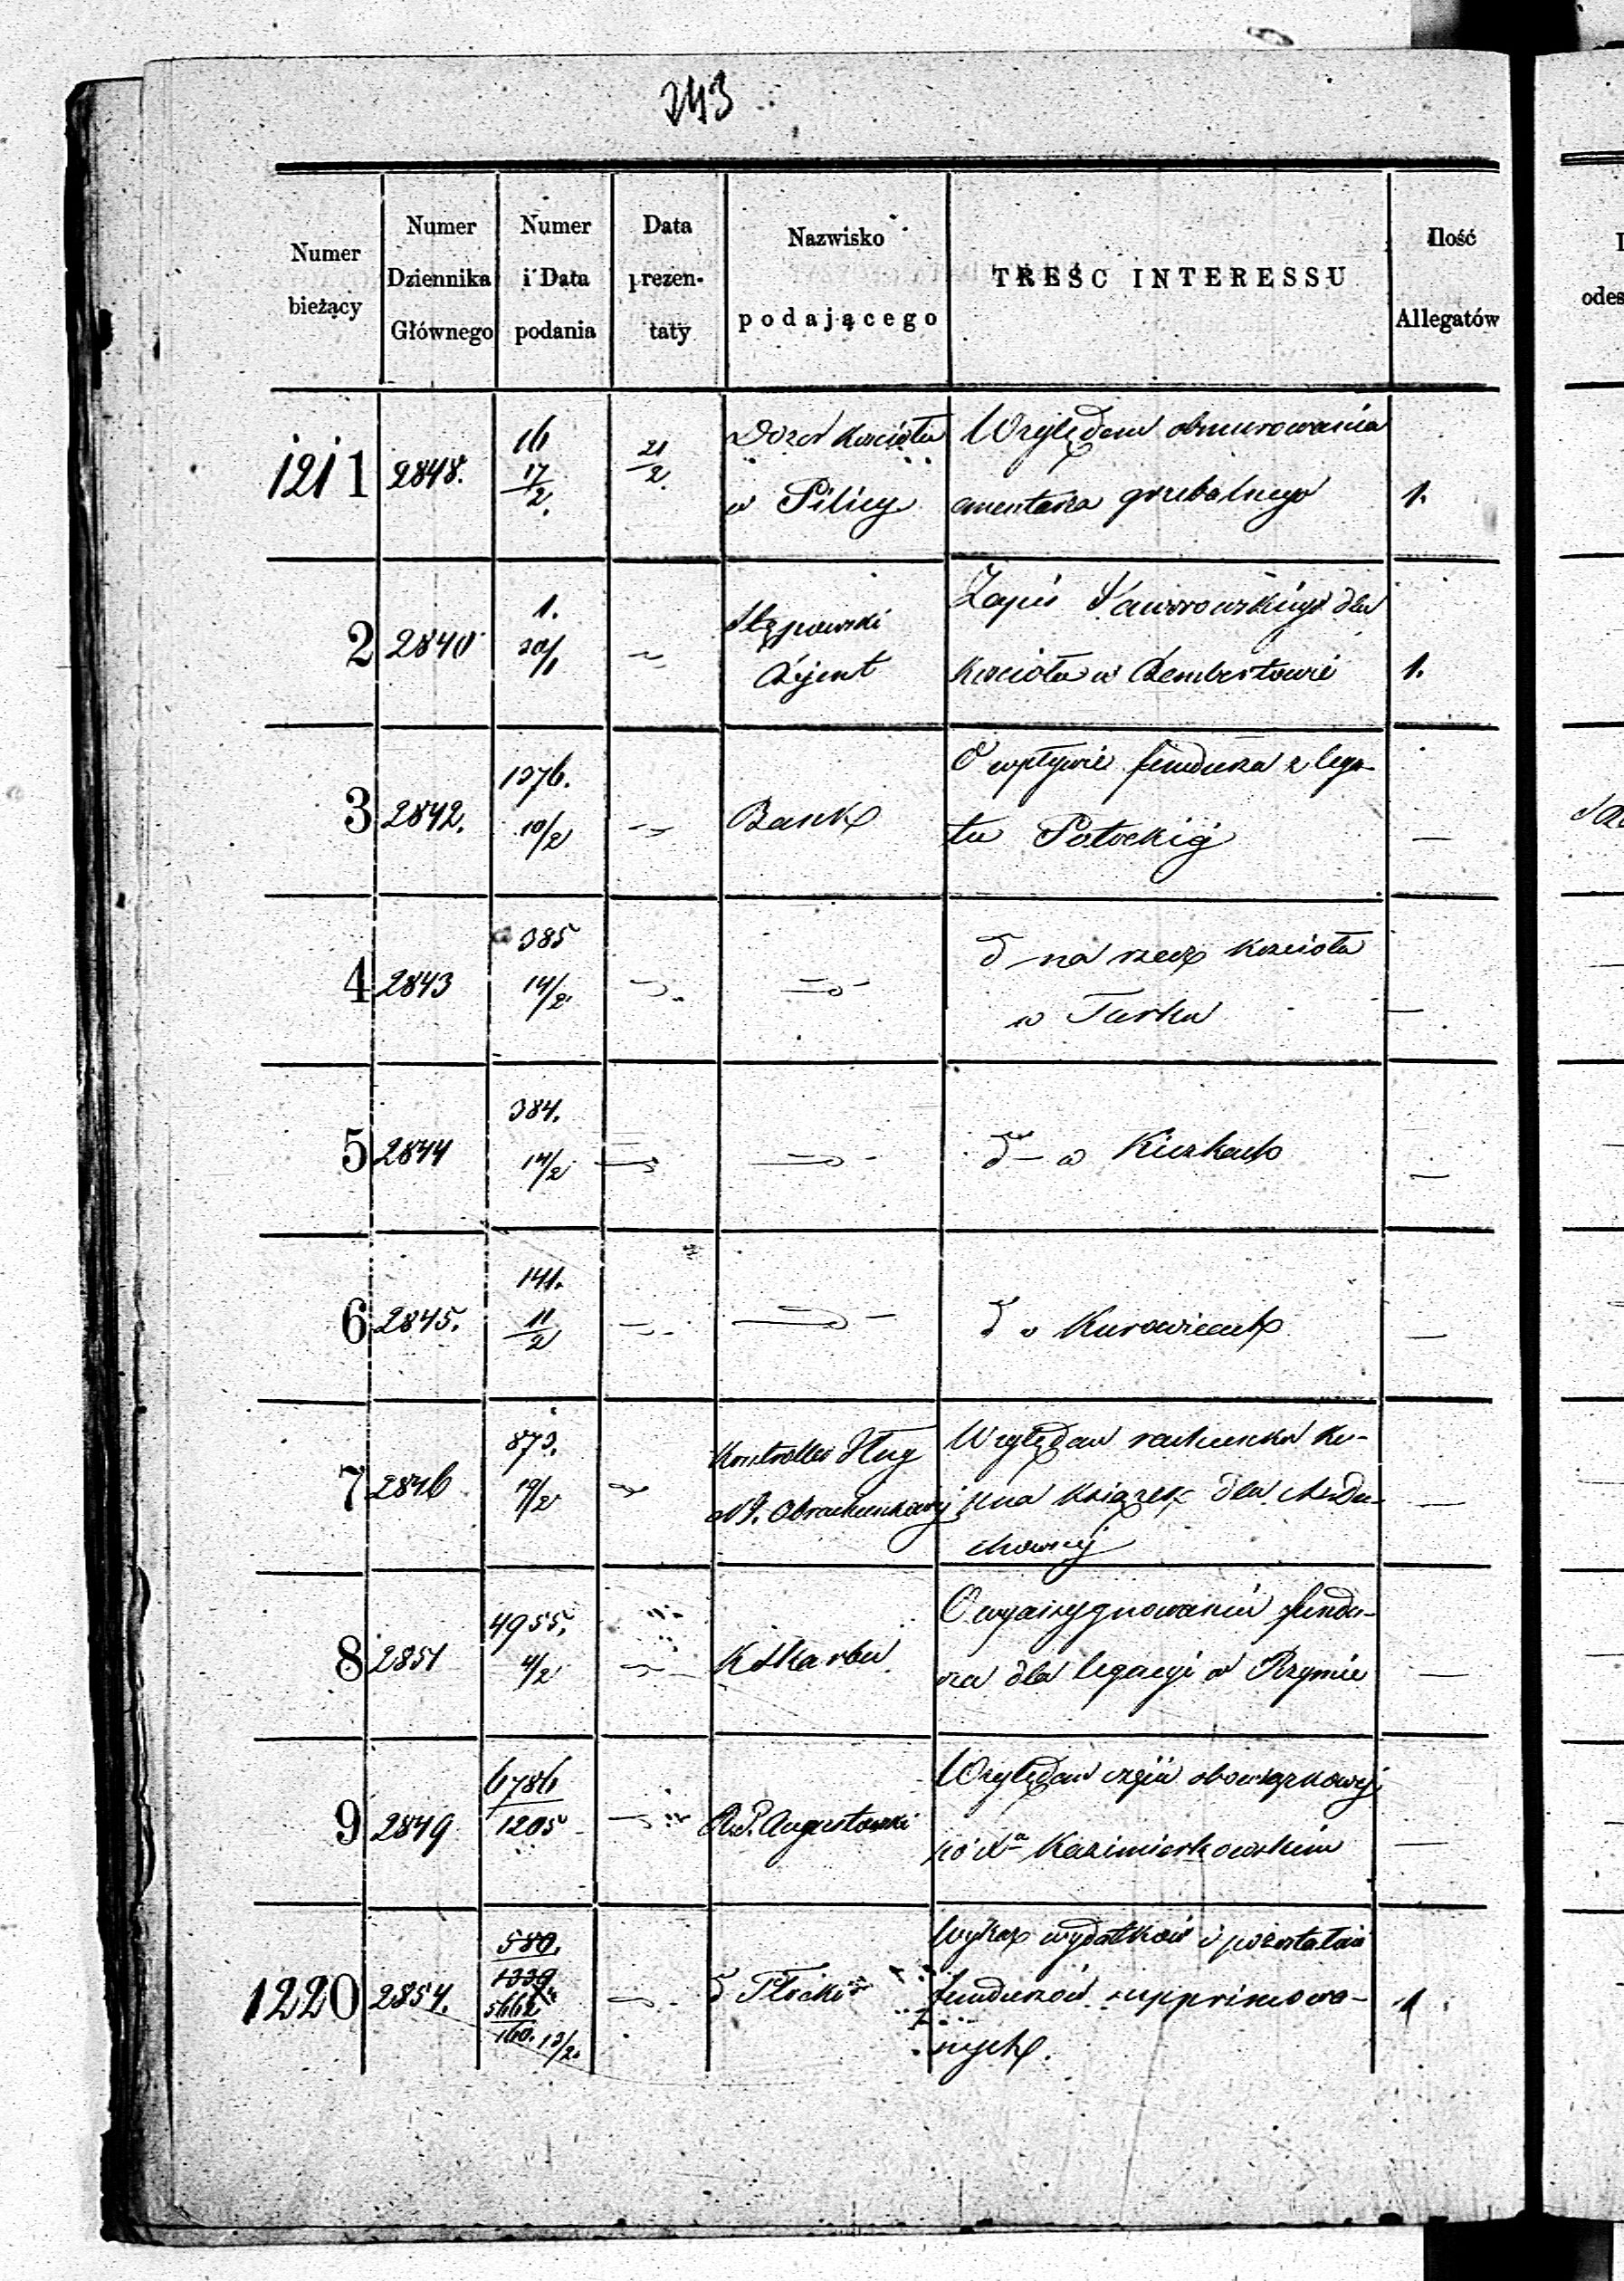 243
Numer bieżący | Numer Dziennika Głównego | Numer i Data podania | Data prezentaty | Nazwisko podającego | TREŚC INTERESSU | Ilość Allegatów
1211 | 2848. | 16 17/2. | 21/2. | Dozór kościoła | Względem obmurowania
w Pilicy | cmentarza grzebalnego | 1.
2 | 2840 | 1. 20/1 | Stępowski | Zapis Jaworowskiego dla
Rejent | kościoła w Rembertowie | 1.
3 | 2842. | 1376. 10/2 | Bank | O wpływie funduszu z lega-
tu Potockiej | —
4 | 2843 | 385 14/2. | na rzecz kościoła
w Turku | —
5 | 2844 | 384. 14/2 | w Kiczkach | —
6 | 2845. | 141. 11/2 | w Kurowicach | —
7 | 2846 | 873. 19/2 | Kontroller Służ | Względem rachunku ku-
Obrachunkowej | pna książek dla Ak. Du-
chownej | —
8 | 2851 | 4955. 4/2 | K Skarbu | O wyassygnowaniu fundu-
szu dla legacyi w Rzymie | —
9 | 2849 | 6786/1205 | R.G. Augustowski | Względem części obowiązkowej
po Xu Kazimierkowskim | —
1220 | 2854. | 580. 1339 5662 160. 13/2. | Płocki | Wykaz wydatków i pozostałości
funduszów supprimowa-
nych. | 1
odes